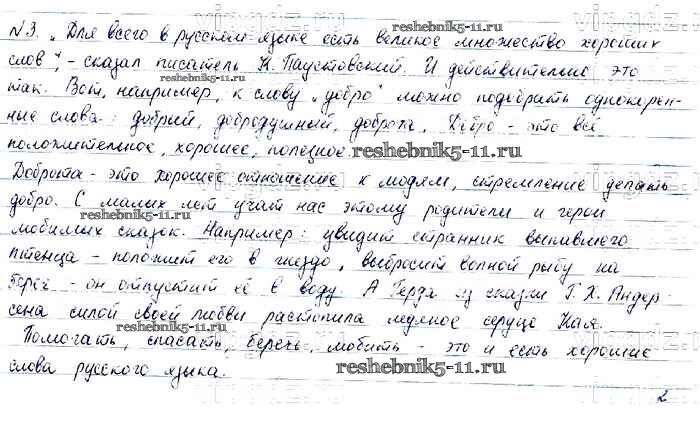 N3. „Для всего в русском языке есть великое множество хороших
слов", - сказал писатель К. Паустовский. И действительно это
так. Вот, например, к слову „добро" можно подобрать однокорен-
ные слова: добрый, добродушный, доброта. Добро - это всё
положительное, хорошее, полезное.
Доброта - это хорошее отношение к людям, стремление делать
добро. С малых лет учат нас этому родители и герои
любимых сказок. Например: увидит странник выпавшего
птенца - положит его в гнездо, выбросит волной рыбу на
берег - он отпустит её в воду. А Герда из сказки Г. Х. Андер-
сена силой своей любви растопила ледяное сердце Кая.
Помогать, спасать, беречь, любить - это и есть хорошие
слова русского языка.
2
reshebnik5-11.ru
reshebnik5-11.ru
reshebnik5-11.ru
reshebnik5-11.ru
reshebnik5-11.ru
reshebnik5-11.ru